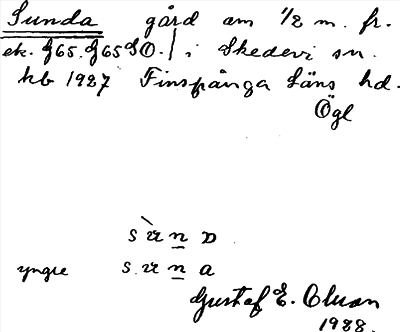 Sunda gård om 1/2 m. fr.
ek. J65. J65SO. / i Skedevi sn.
kb 1927 Finspånga Läns hd.
Ögl
s u n
yngre s u n a
Gustaf E.
1928.